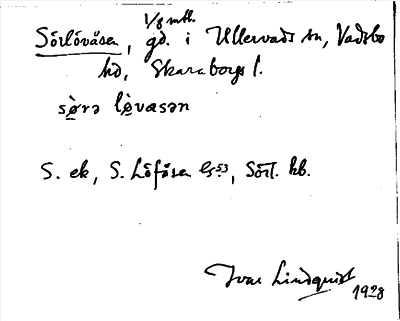 1/8 mtl.
Sörlövåsen, gd. i Ullervads sn, Vadsbo
hd, Skaraborgs l.
sø̀rə lø̀vasən
S. ek, S. Löfåsen GS53, Sörl. kb.
Ivar Lindquist
1928